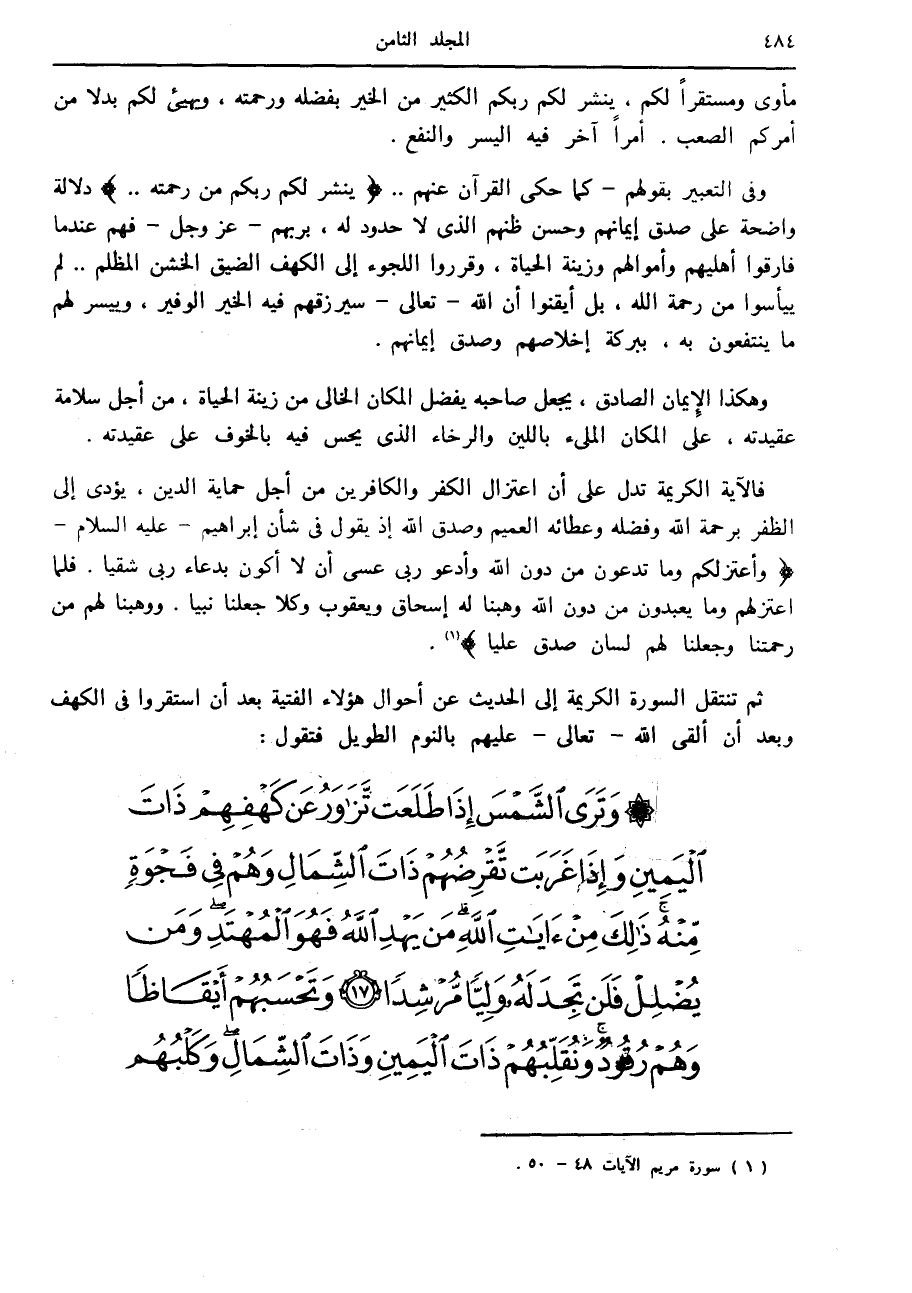 ٤٨٤ المجلد الثامن
مأوى ومستقراً لكم ، ينشر لكم ربكم الكثير من الخير بفضله ورحمته ، ويهيئ لكم بدلا من
أمركم الصعب . أمراً آخر فيه اليسر والنفع .
وفى التعبير بقولهم – كما حكى القرآن عنهم .. ﴿ ينشر لكم ربكم من رحمته .. ﴾ دلالة
واضحة على صدق إيمانهم وحسن ظنهم الذى لا حدود له ، بربهم – عز وجل – فهم عندما
فارقوا أهليهم وأموالهم وزينة الحياة ، وقرروا اللجوء إلى الكهف الضيق الخشن المظلم .. لم
ييأسوا من رحمة الله ، بل أيقنوا أن الله – تعالى – سيرزقهم فيه الخير الوفير ، وييسر لهم
ما ينتفعون به ، ببركة إخلاصهم وصدق إيمانهم .
وهكذا الإيمان الصادق ، يجعل صاحبه يفضل المكان الخالى من زينة الحياة ، من أجل سلامة
عقيدته ، على المكان المليء باللين والرخاء الذى يحس فيه بالخوف على عقيدته .
فالآية الكريمة تدل على أن اعتزال الكفر والكافرين من أجل حماية الدين ، يؤدى إلى
الظفر برحمة الله وفضله وعطائه العميم وصدق الله إذ يقول فى شأن إبراهيم – عليه السلام –
﴿ وأعتزلكم وما تدعون من دون الله وأدعو ربى عسى أن لا أكون بدعاء ربى شقيا . فلما
اعتزلهم وما يعبدون من دون الله وهبنا له إسحاق ويعقوب وكلا جعلنا نبيا . ووهبنا لهم من
رحمتنا وجعلنا لهم لسان صدق عليا ﴾(١) .
ثم تنتقل السورة الكريمة إلى الحديث عن أحوال هؤلاء الفتية بعد أن استقروا فى الكهف
وبعد أن ألقى الله – تعالى – عليهم بالنوم الطويل فتقول :
۞ وَتَرَى ٱلشَّمْسَ إِذَا طَلَعَت تَّزَٰوَرُ عَن كَهْفِهِمْ ذَاتَ
ٱلْيَمِينِ وَإِذَا غَرَبَت تَّقْرِضُهُمْ ذَاتَ ٱلشِّمَالِ وَهُمْ فِى فَجْوَةٍ
مِّنْهُ ۚ ذَٰلِكَ مِنْ ءَايَٰتِ ٱللَّهِ ۗ مَن يَهْدِ ٱللَّهُ فَهُوَ ٱلْمُهْتَدِ ۖ وَمَن
يُضْلِلْ فَلَن تَجِدَ لَهُۥ وَلِيًّا مُّرْشِدًا ﴿١٧﴾ وَتَحْسَبُهُمْ أَيْقَاظًا
وَهُمْ رُقُودٌ ۚ وَنُقَلِّبُهُمْ ذَاتَ ٱلْيَمِينِ وَذَاتَ ٱلشِّمَالِ ۖ وَكَلْبُهُم
(١) سورة مريم الآيات ٤٨ – ٥٠ .